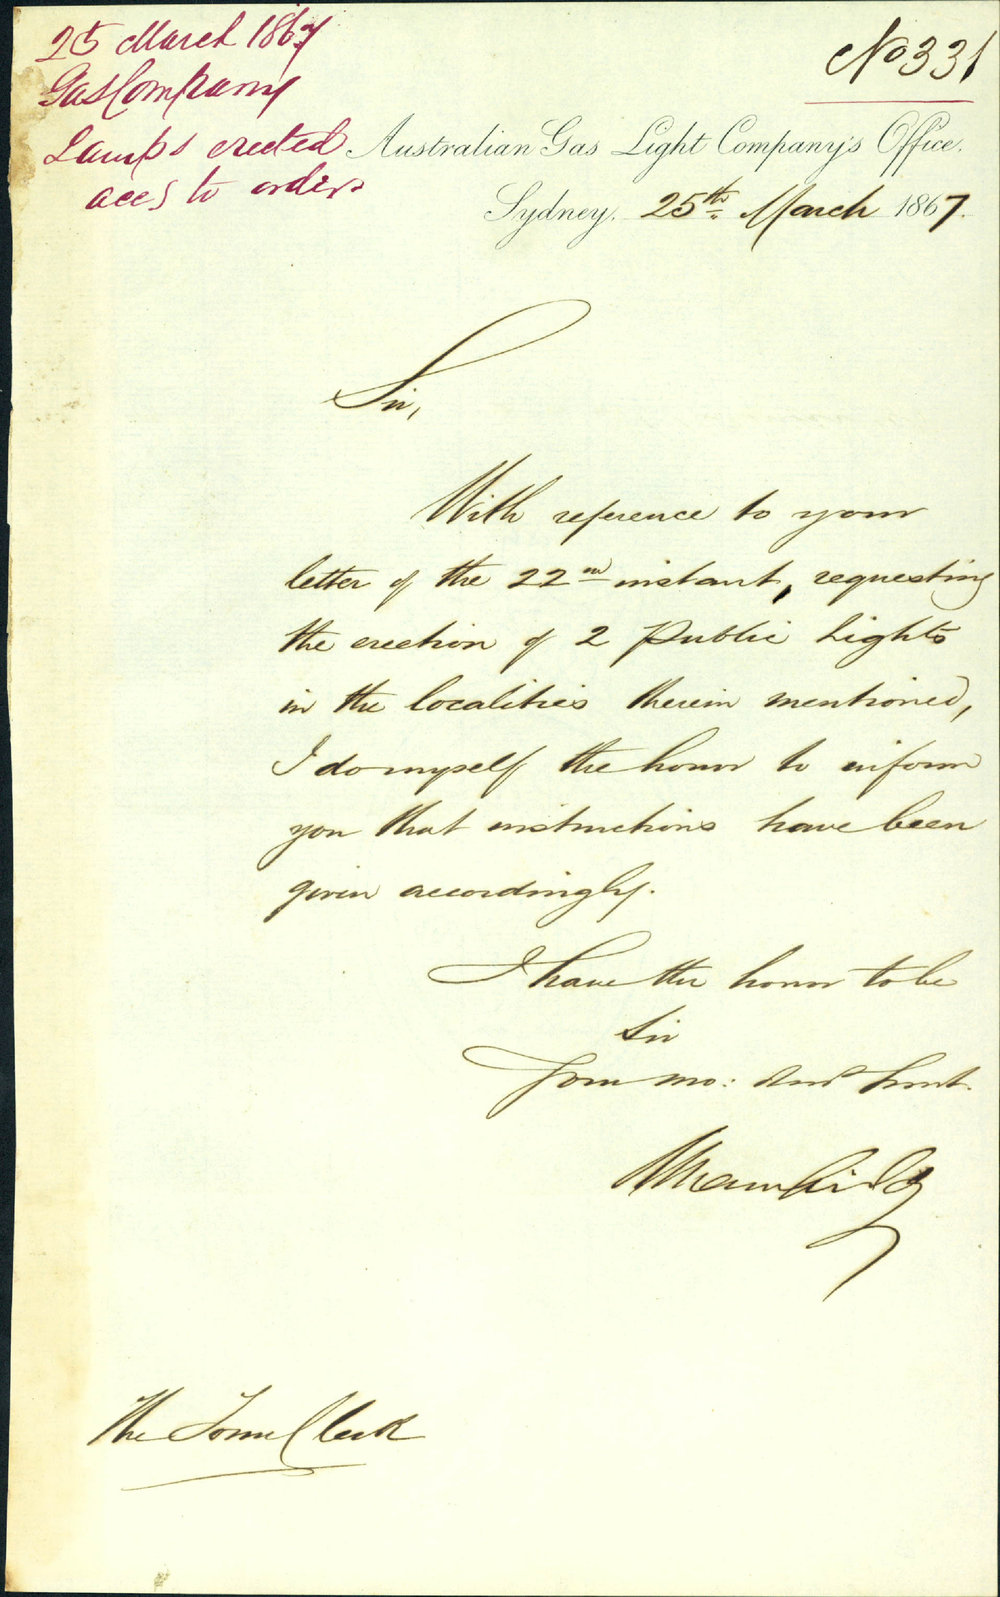 25 March 1867
Gas Company
Lamps erected
acc to orders
No 331
Australian Gas Light Company's Office.
Sydney. 25th March 1867.
Sir,
With reference to your
letter of the 22nd instant, requesting
the erection of 2 Public Lights
in the localities therein mentioned,
I do myself the honor to inform
you that instructions have been
given accordingly.
I have the honor to be
Sir
Your mo: Obt Servt.
The Town Clerk